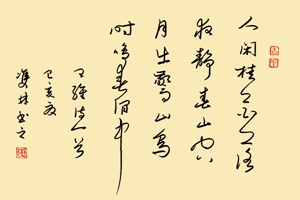 人闲桂花落
夜静春山空
月出惊山鸟
时鸣春涧中
王维诗一首
己亥夏
书之